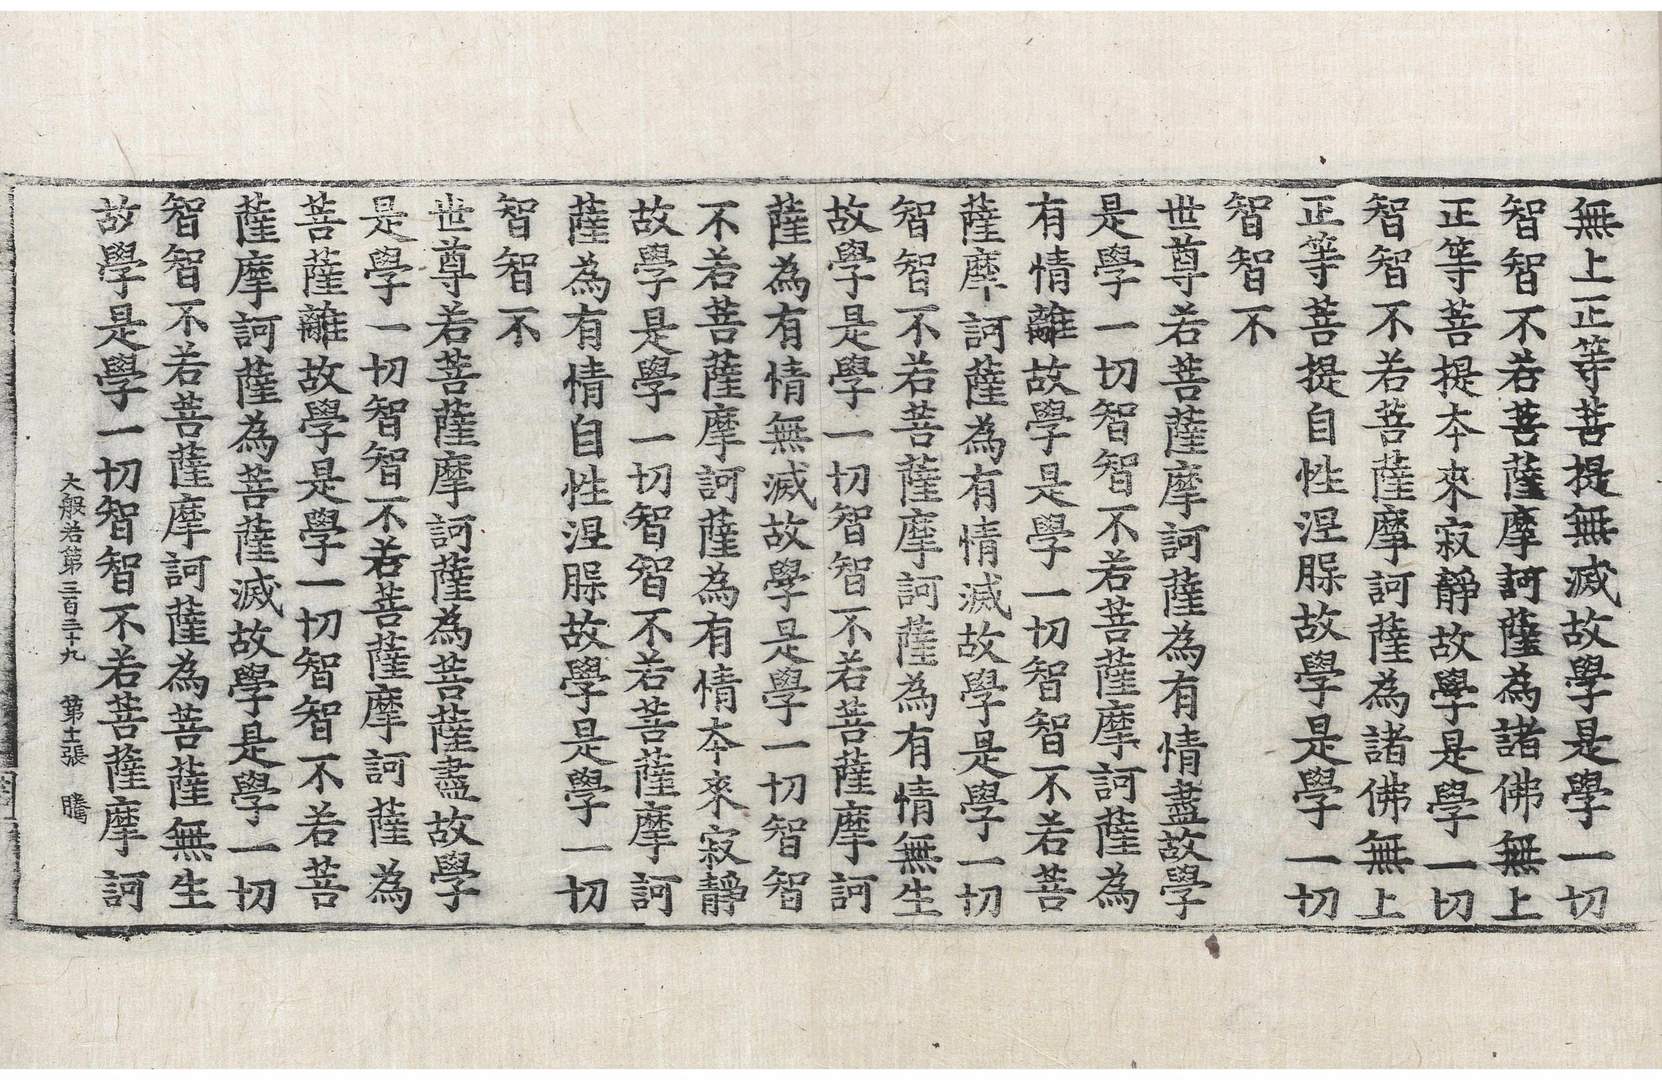 無上正等菩提無滅故學是學一切
智智不若菩薩摩訶薩為諸佛無上
正等菩提夲來寂靜故學是學一切
智智不若菩薩摩訶薩為諸佛無上
正等菩提自性涅䐣故學是學一切
智智不
世尊若菩薩摩訶薩為有情盡故學
是學一切智智不若菩薩摩訶薩為
有情離故學是學一切智智不若菩
薩摩訶薩為有情滅故學是學一切
智智不若菩薩摩訶薩為有情無生
故學是學一切智智不若菩薩摩訶
薩為有情無滅故學是學一切智智
不若菩薩摩訶薩為有情夲來寂靜
故學是學一切智智不若菩薩摩訶
薩為有情自性涅䐣故學是學一切
智智不
世尊若菩薩摩訶薩為菩薩盡故學
是學一切智智不若菩薩摩訶薩為
菩薩離故學是學一切智智不若菩
薩摩訶薩為菩薩滅故學是學一切
智智不若菩薩摩訶薩為菩薩無生
故學是學一切智智不若菩薩摩訶
大般若第三百三十九 第十一張 騰